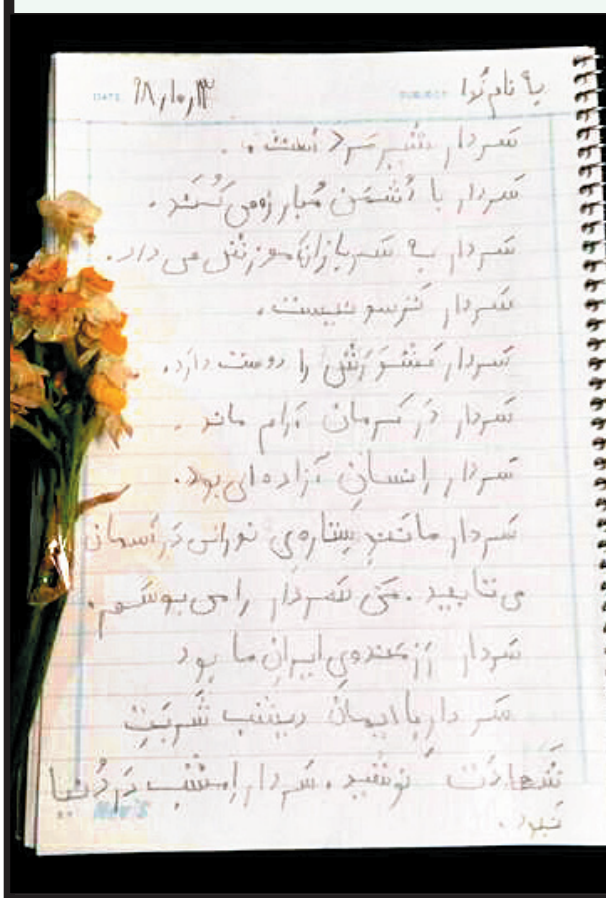 به نام خدا SUBJECT: DATE: ۹۸٫۱۰٫۱۳
سردار شیر مرد است.
سردار با دُشمَن مُبارزه می کُنَد.
سردار به سربازان آموزش می داد.
سردار ترسو نیست.
سردار کِشوَرَش را دوست دارد.
سردار دَر کرمان آرام ماند.
سردار اِنسان آزاده ای بود.
سردار مانَندِ سِتاره ی نورانی دَر آسمان
می تابید. مَن سَردار را می بوسَم.
سَردار رَزمَنده ی ایرانِ ما بود
سَردار با ایمان دیشَب شَربَتِ
شَهادَت نوشید. سَردار اِمشَب دَر دُنیا
نَبود.
Nevis